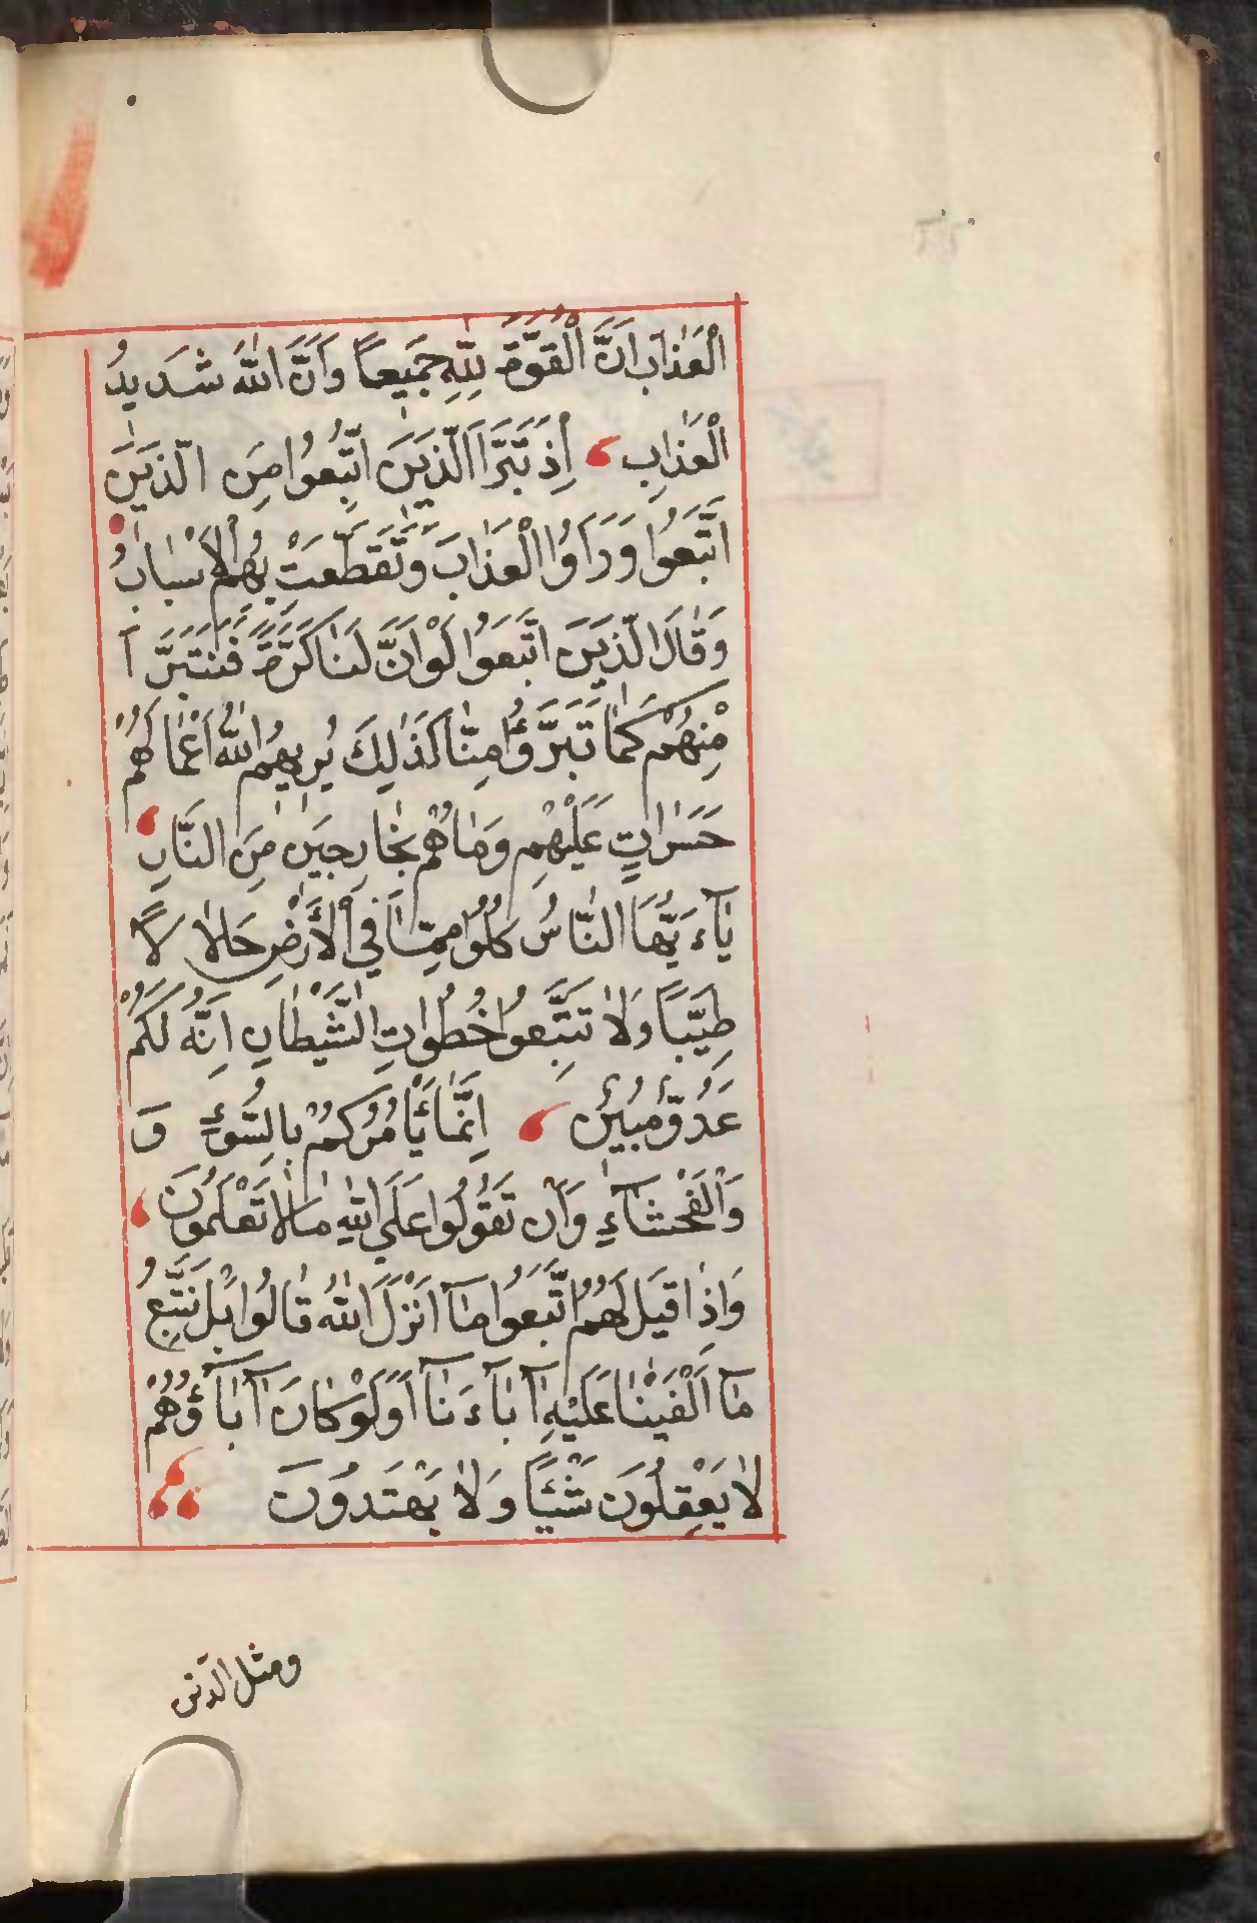 الْعَذَابَ اَنَّ الْقُوَّةَ لِلّٰهِ جَمِيعاً وَاَنَّ اللّٰهَ شَدِيدُ
الْعَذَابِ اِذْ تَبَرَّاَ الَّذِينَ اتُّبِعُوا مِنَ الَّذِينَ
اتَّبَعُوا وَرَاَوُا الْعَذَابَ وَتَقَطَّعَتْ بِهِمُ الْاَسْبَابُ
وَقَالَ الَّذِينَ اتَّبَعُوا لَوْ اَنَّ لَنَا كَرَّةً فَنَتَبَرَّ اَ
مِنْهُمْ كَمَا تَبَرَّؤُا مِنَّا كَذٰلِكَ يُرِيهِمُ اللّٰهُ اَعْمَالَهُمْ
حَسَرَاتٍ عَلَيْهِمْ وَمَا هُمْ بِخَارِجِينَ مِنَ النَّارِ
يَآءَيُّهَا النَّاسُ كُلُوا مِمَّا فِي الْاَرْضِ حَلَالًا لًا
طَيِّباً وَلَا تَتَّبِعُوا خُطُوَاتِ الشَّيْطَانِ اِنَّهُ لَكُمْ
عَدُوٌّ مُبِينٌ اِنَّمَا يَأْمُرُكُمْ بِالسُّوٓءِ وَ
وَالْفَحْشَآءِ وَاَنْ تَقُولُوا عَلَي اللّٰهِ مَا لَا تَعْلَمُونَ
وَاِذَا قِيلَ لَهُمُ اتَّبِعُوا مَآ اَنْزَلَ اللّٰهُ قَالُوا بَلْ نَتَّبِعُ
مَآ اَلْفَيْنَا عَلَيْهِ آبَآءَنَا اَوَلَوْ كَانَ آبَآؤُهُمْ
لَا يَعْقِلُونَ شَيْئًا وَلَا يَهْتَدُونَ
ومثل الذين